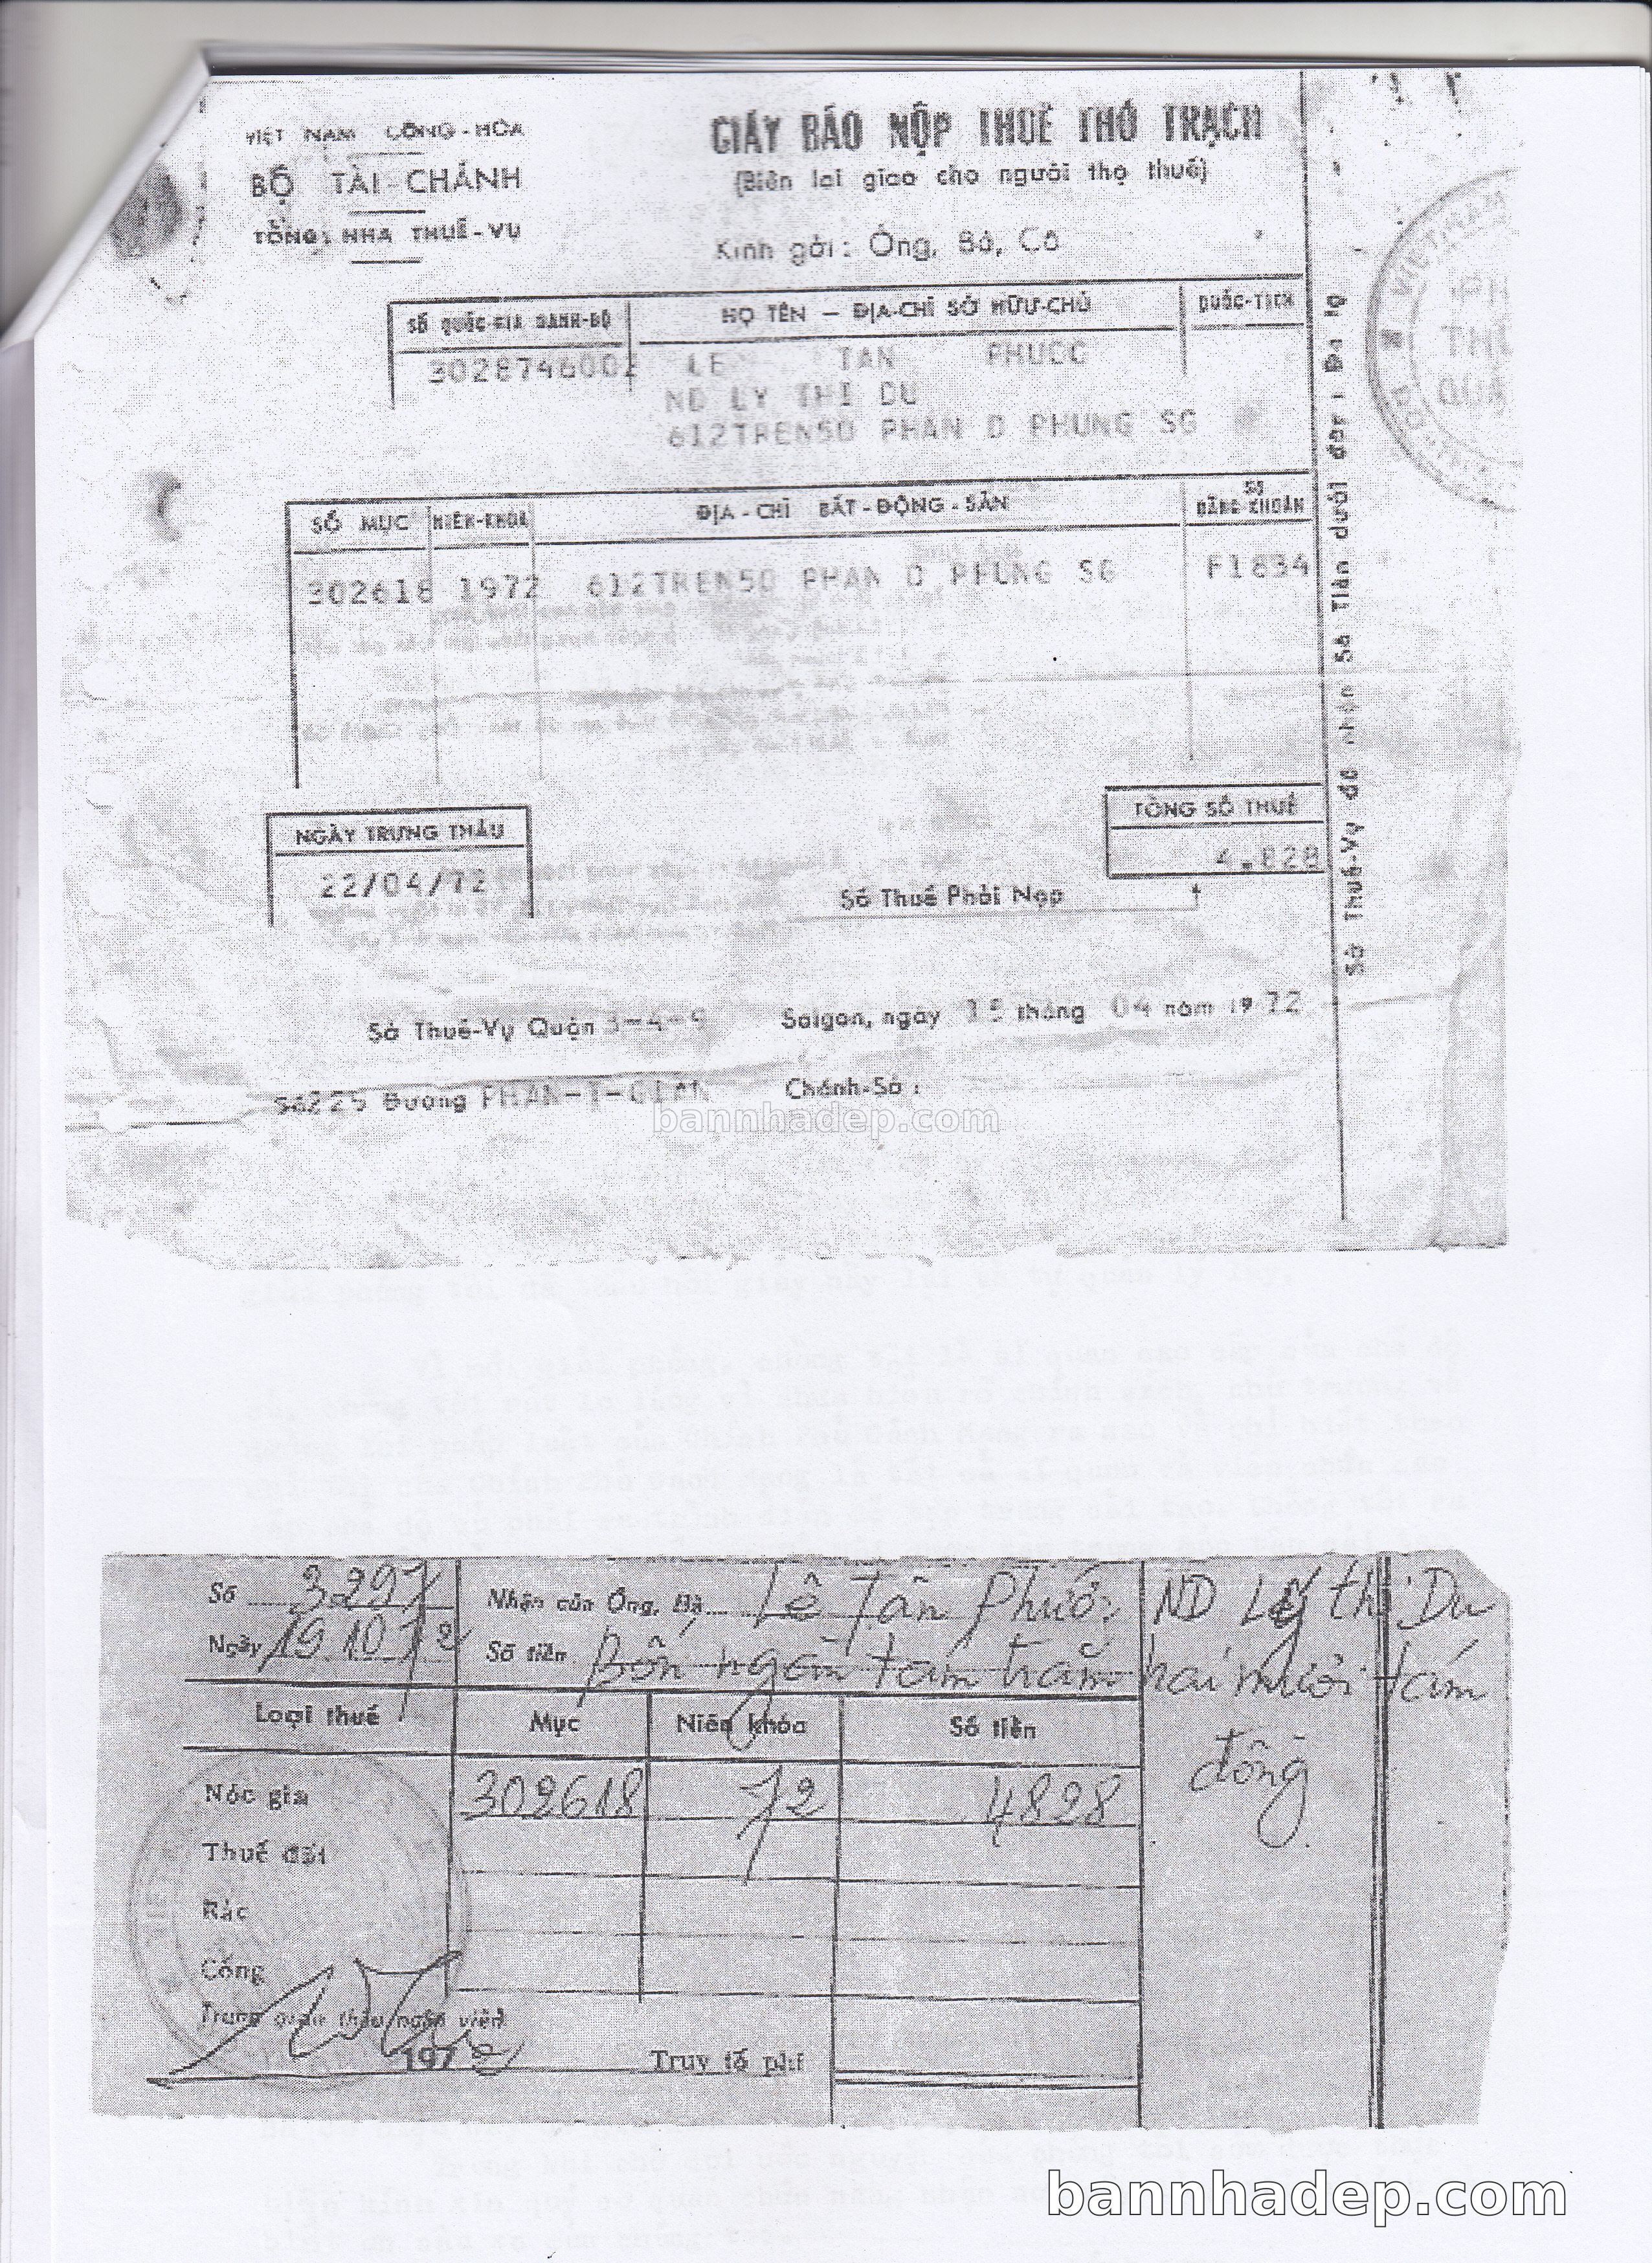 VIỆT NAM CỘNG-HÒA
BỘ TÀI-CHÁNH
TỔNG NHA THUẾ-VỤ
GIẤY BÁO NỘP THUẾ THỔ TRẠCH
(Biên lai giao cho người thọ thuế)
Kính gởi: Ông, Bà, Cô
SỐ QUỐC-GIA DANH-BỘ
HỌ TÊN — ĐỊA-CHỈ SỞ HỮU-CHỦ
QUỐC-TỊCH
3028746002 LE TAN PHUOC
ND LY THI DU
612TREN50 PHAN D PHUNG SG
SỐ MỤC
NIÊN-KHÓA
ĐỊA-CHỈ BẤT-ĐỘNG-SẢN
SỐ BẰNG KHOÁN
302618 1972 612TREN50 PHAN D PHUNG SG F1834
NGÀY TRƯNG THÂU
22/04/72
TỔNG SỐ THUẾ
4.828
Số Thuế Phải Nạp
Sở Thuế-Vụ Quận 3-4-5
Saigon, ngày 15 tháng 04 năm 1972
Số 225 Đường PHAN-T-GIAN
Chánh-Sở:
Sở Thuế-Vụ đã nhận Số Tiền dưới đây:
bannhadep.com
Số 3297
Nhận của Ông, Bà Lê Tấn Phước ND Lý thị Du
Ngày 19 10 72
Số tiền Bốn ngàn tám trăm hai mươi tám
đồng
Loại thuế
Mục
Niên khóa
Số tiền
Nóc gia 302618 72 4828
Thuế đất
Rác
Cống
197 2
Truy tố phí
bannhadep.com